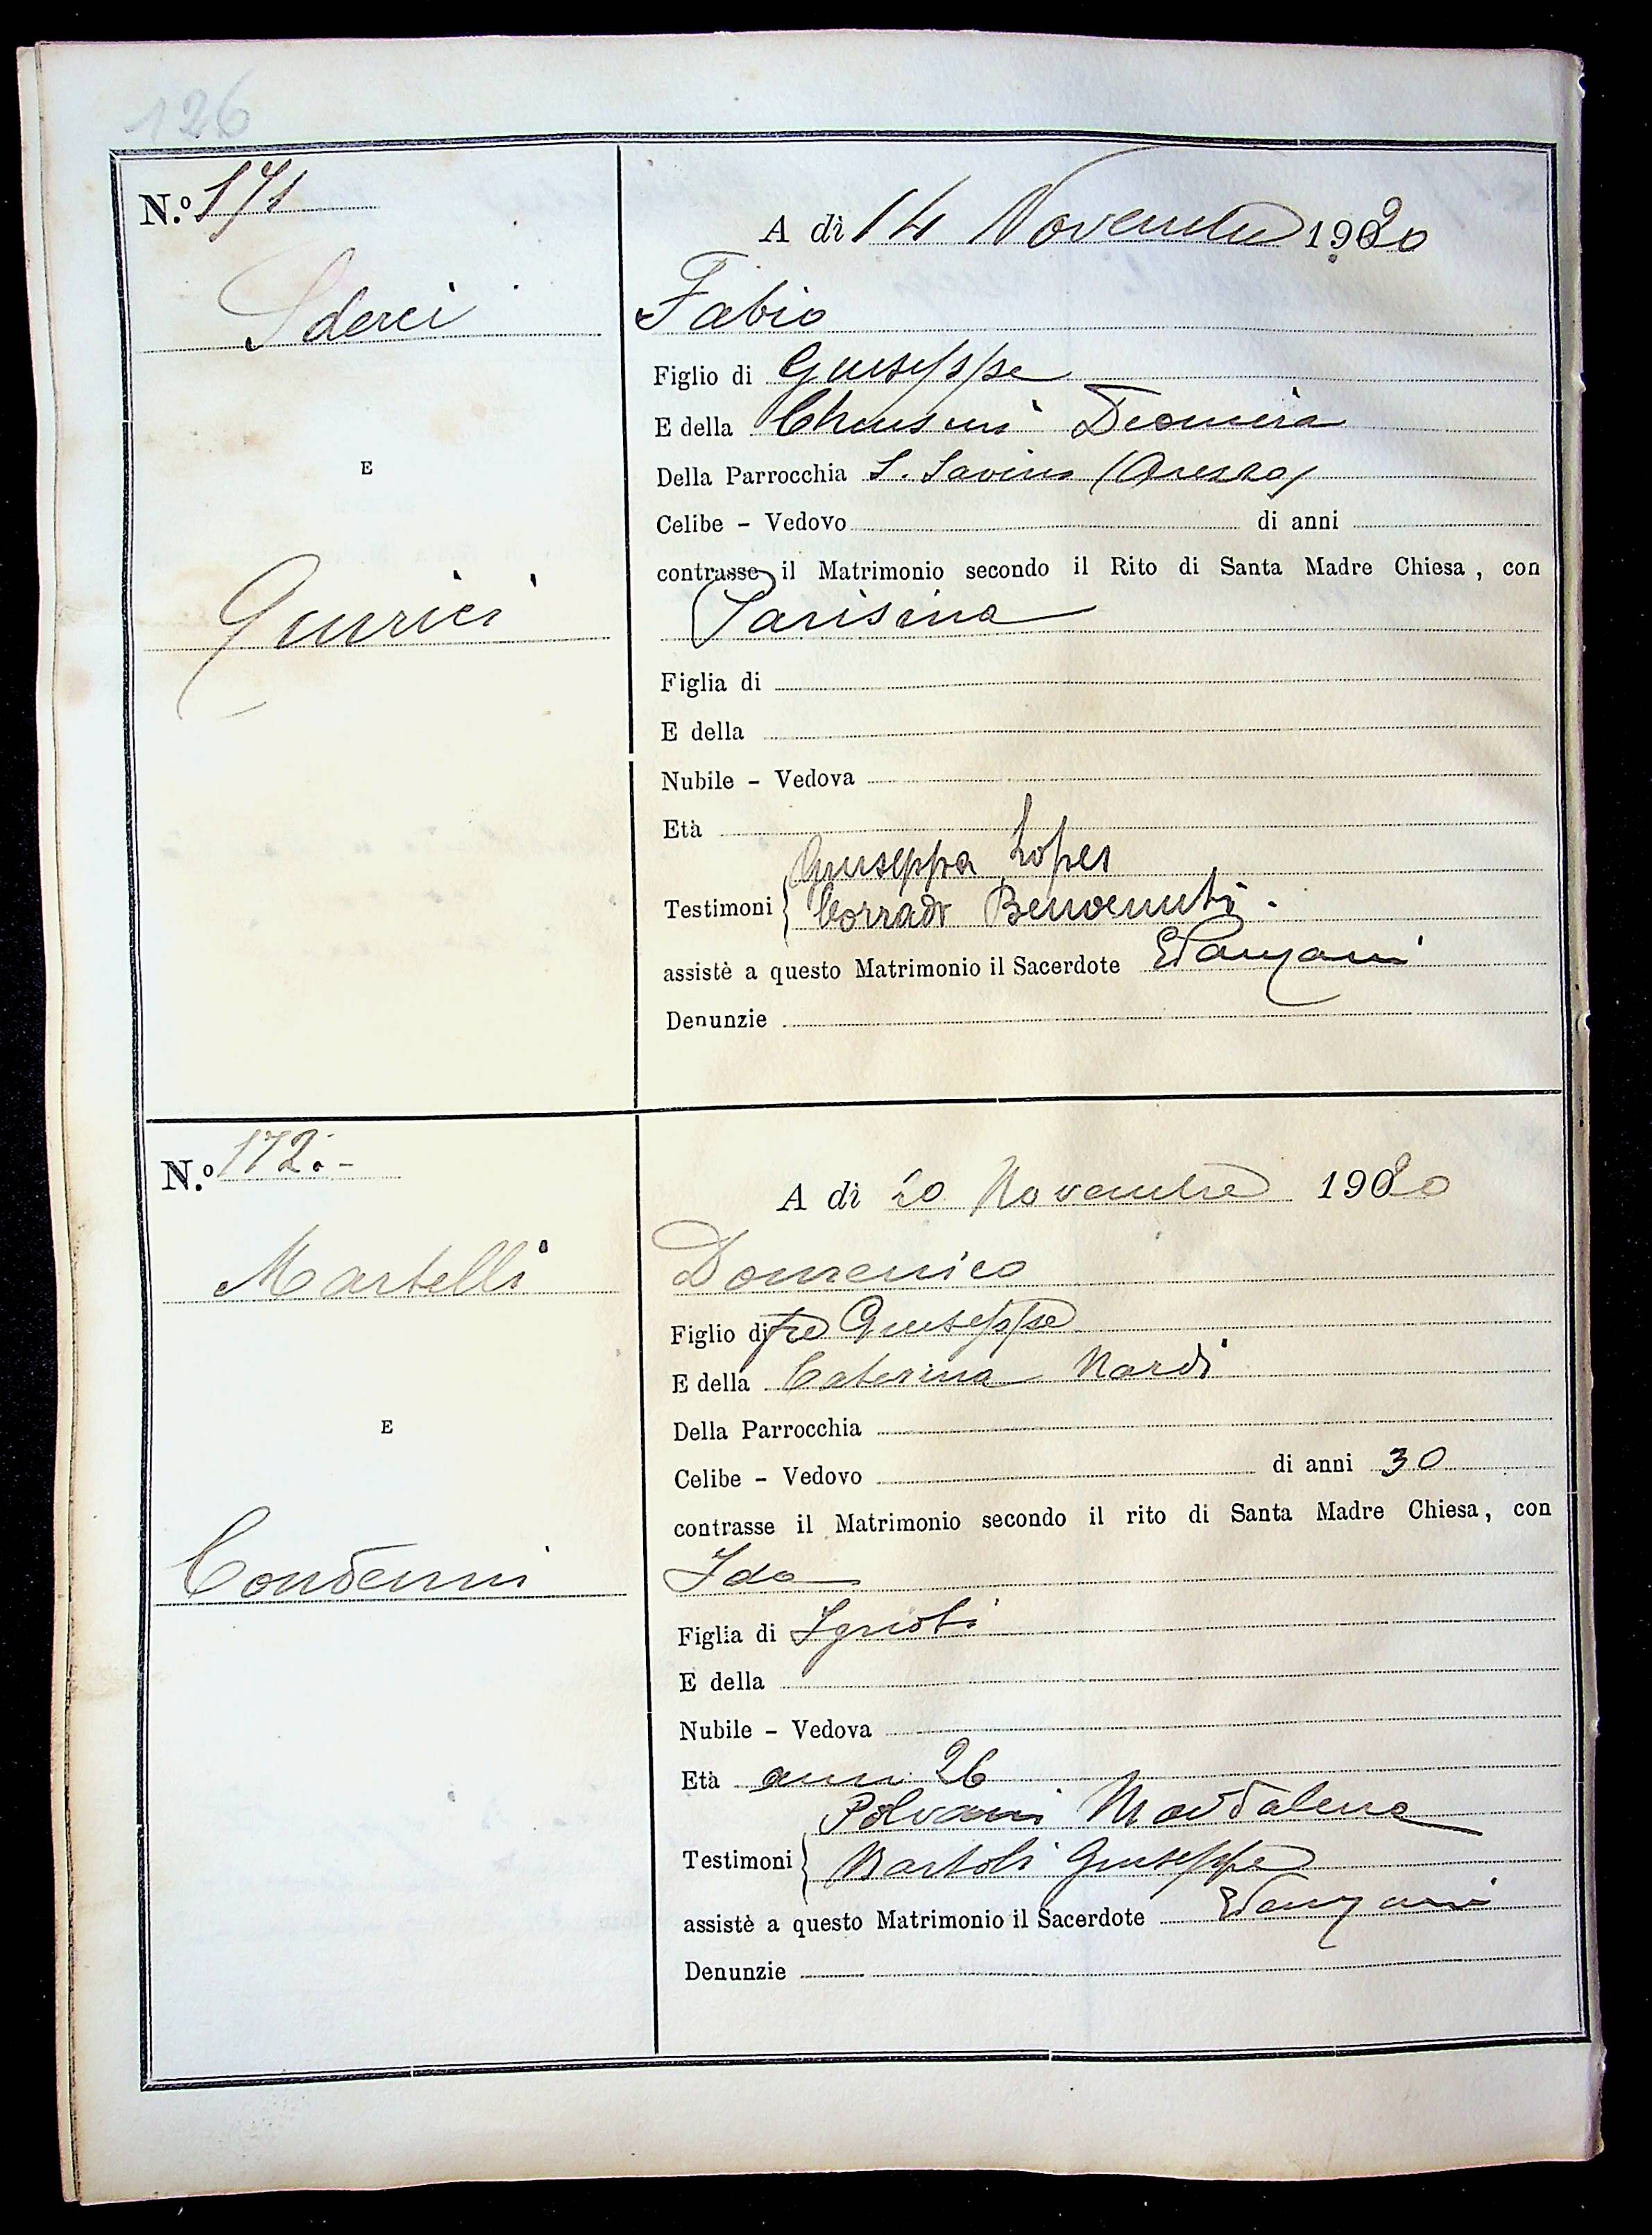 126
N.º 171
A dì 14 Novembre 1920
Sderci
Fabio
Figlio di Giuseppe
E della Deomira
Della Parrocchia S. Savino (Arezzo)
E
Celibe - Vedovo di anni
contrasse il Matrimonio secondo il Rito di Santa Madre Chiesa, con
Parisina
Figlia di
E della
Nubile - Vedova
Età
Giuseppa Lopes
Testimoni { Corrado Benvenuti.
assistè a questo Matrimonio il Sacerdote E Panzani
Denunzie
N.º 172.-
A dì 20 Novembre 1920
Martelli
Domenico
Figlio di fu Giuseppe
E della Caterina Nardi
Della Parrocchia
E
Celibe - Vedovo di anni 30
contrasse il Matrimonio secondo il rito di Santa Madre Chiesa, con
Condenni
Ida
Figlia di Ignoti
E della
Nubile - Vedova
Età anni 26
Polvani Maddalena
Testimoni { Bartoli Giuseppe
assistè a questo Matrimonio il Sacerdote E Panzani
Denunzie